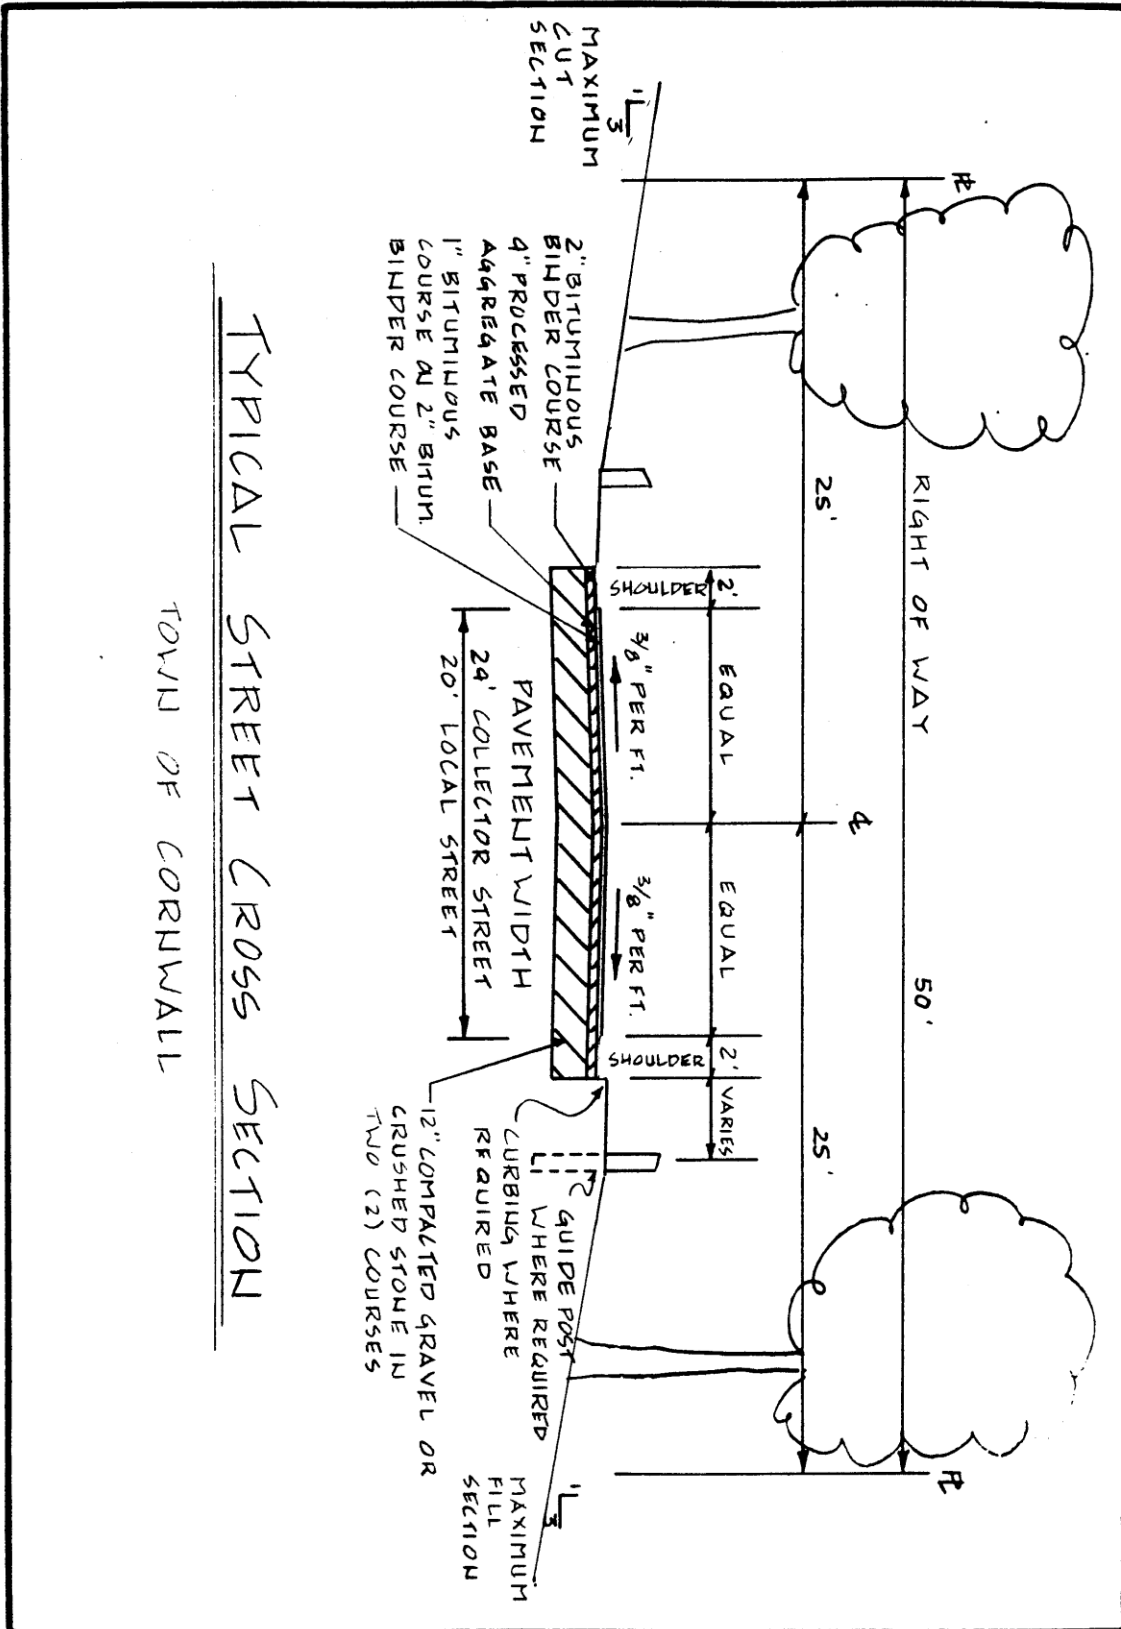 ℄
℄
RIGHT OF WAY 50'
25' 25'
2' EQUAL EQUAL 2' VARIES
SHOULDER 3/8" PER FT. 3/8" PER FT. SHOULDER
1'
3
MAXIMUM
CUT
SECTION
2" BITUMINOUS
BINDER COURSE
4" PROCESSED
AGGREGATE BASE
1" BITUMINOUS
COURSE ON 2" BITUM.
BINDER COURSE
PAVEMENT WIDTH
24' COLLECTOR STREET
20' LOCAL STREET
GUIDE POST
WHERE REQUIRED
CURBING WHERE
REQUIRED
12" COMPACTED GRAVEL OR
CRUSHED STONE IN
TWO (2) COURSES
1'
3
MAXIMUM
FILL
SECTION
TYPICAL STREET CROSS SECTION
TOWN OF CORNWALL